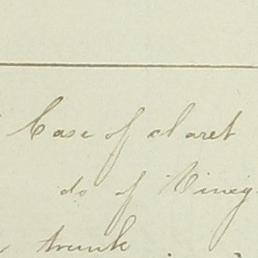 Case of claret
do of Vineg
trunk